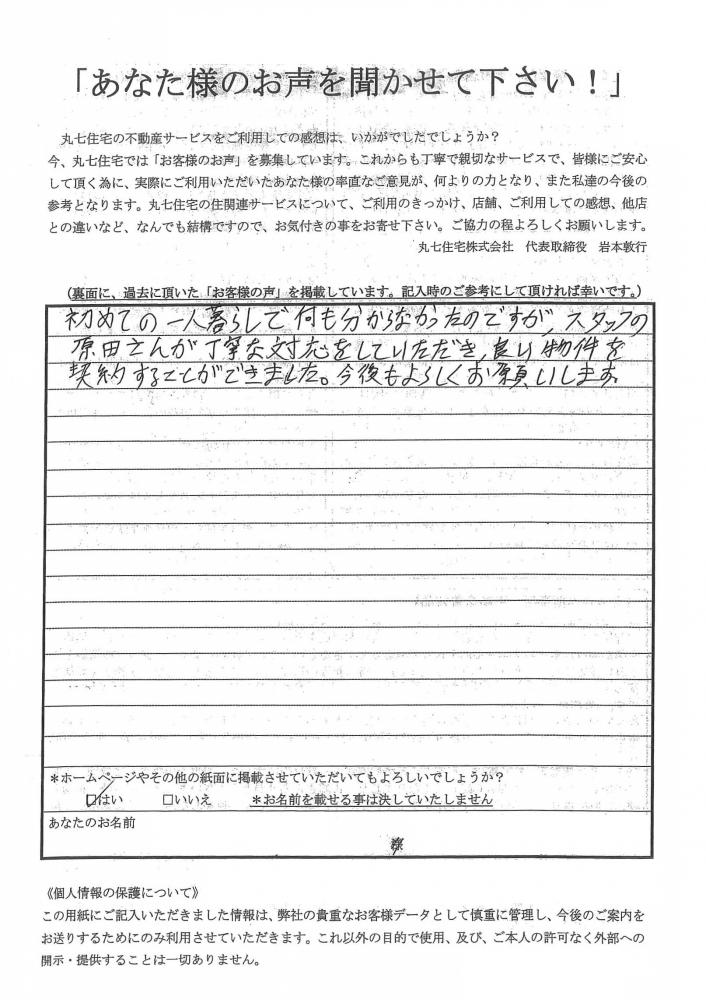 「あなた様のお声を聞かせて下さい！」
丸七住宅の不動産サービスをご利用しての感想は、いかがでしたでしょうか？
今、丸七住宅では「お客様のお声」を募集しています。これからも丁寧で親切なサービスで、皆様にご安心
して頂く為に、実際にご利用いただいたあなた様の率直なご意見が、何よりの力となり、また私達の今後の
参考となります。丸七住宅の住関連サービスについて、ご利用のきっかけ、店舗、ご利用しての感想、他店
との違いなど、なんでも結構ですので、お気付きの事をお寄せ下さい。ご協力の程よろしくお願いします。
丸七住宅株式会社　代表取締役　岩本敦行
（裏面に、過去に頂いた「お客様の声」を掲載しています。記入時のご参考にして頂ければ幸いです。）
初めての一人暮らしで何も分からなかったのですが、スタッフの
原田さんが丁寧な対応をしていただき、良い物件を
契約することができました。今後もよろしくお願いします。
＊ホームページやその他の紙面に掲載させていただいてもよろしいでしょうか？
☑はい　□いいえ　＊お名前を載せる事は決していたしません
あなたのお名前
《個人情報の保護について》
この用紙にご記入いただきました情報は、弊社の貴重なお客様データとして慎重に管理し、今後のご案内を
お送りするためにのみ利用させていただきます。これ以外の目的で使用、及び、ご本人の許可なく外部への
開示・提供することは一切ありません。